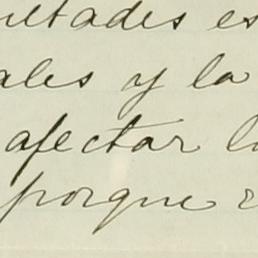 ultades es
ales y la
afectar l
porque